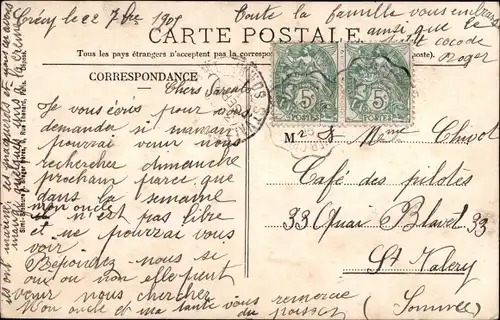 Crécy le 22 7bre 1907
Toute la famille vous embrasse
ainsi que le
petit cocode
Roger
CARTE POSTALE
Tous les pays étrangers n'acceptent pas la correspondance
poste).
CORRESPONDANCE
Chers Parents
Je vous écris pour vous
demander si maman
pourrai venir nous
rechercher dimanche
prochain parce que
dans la semaine
mon oncle
n'est pas libre
et ne pourrai vous
voir
Repondez nous si
oui ou non elle peut
venir nous chercher
Mon oncle et ma tante vous remercie
du poisson
5 5
POSTES POSTES
Mr & Mme Chivot
Café des pilotes
33 Quai Blavet 33
St Valery
(Somme)